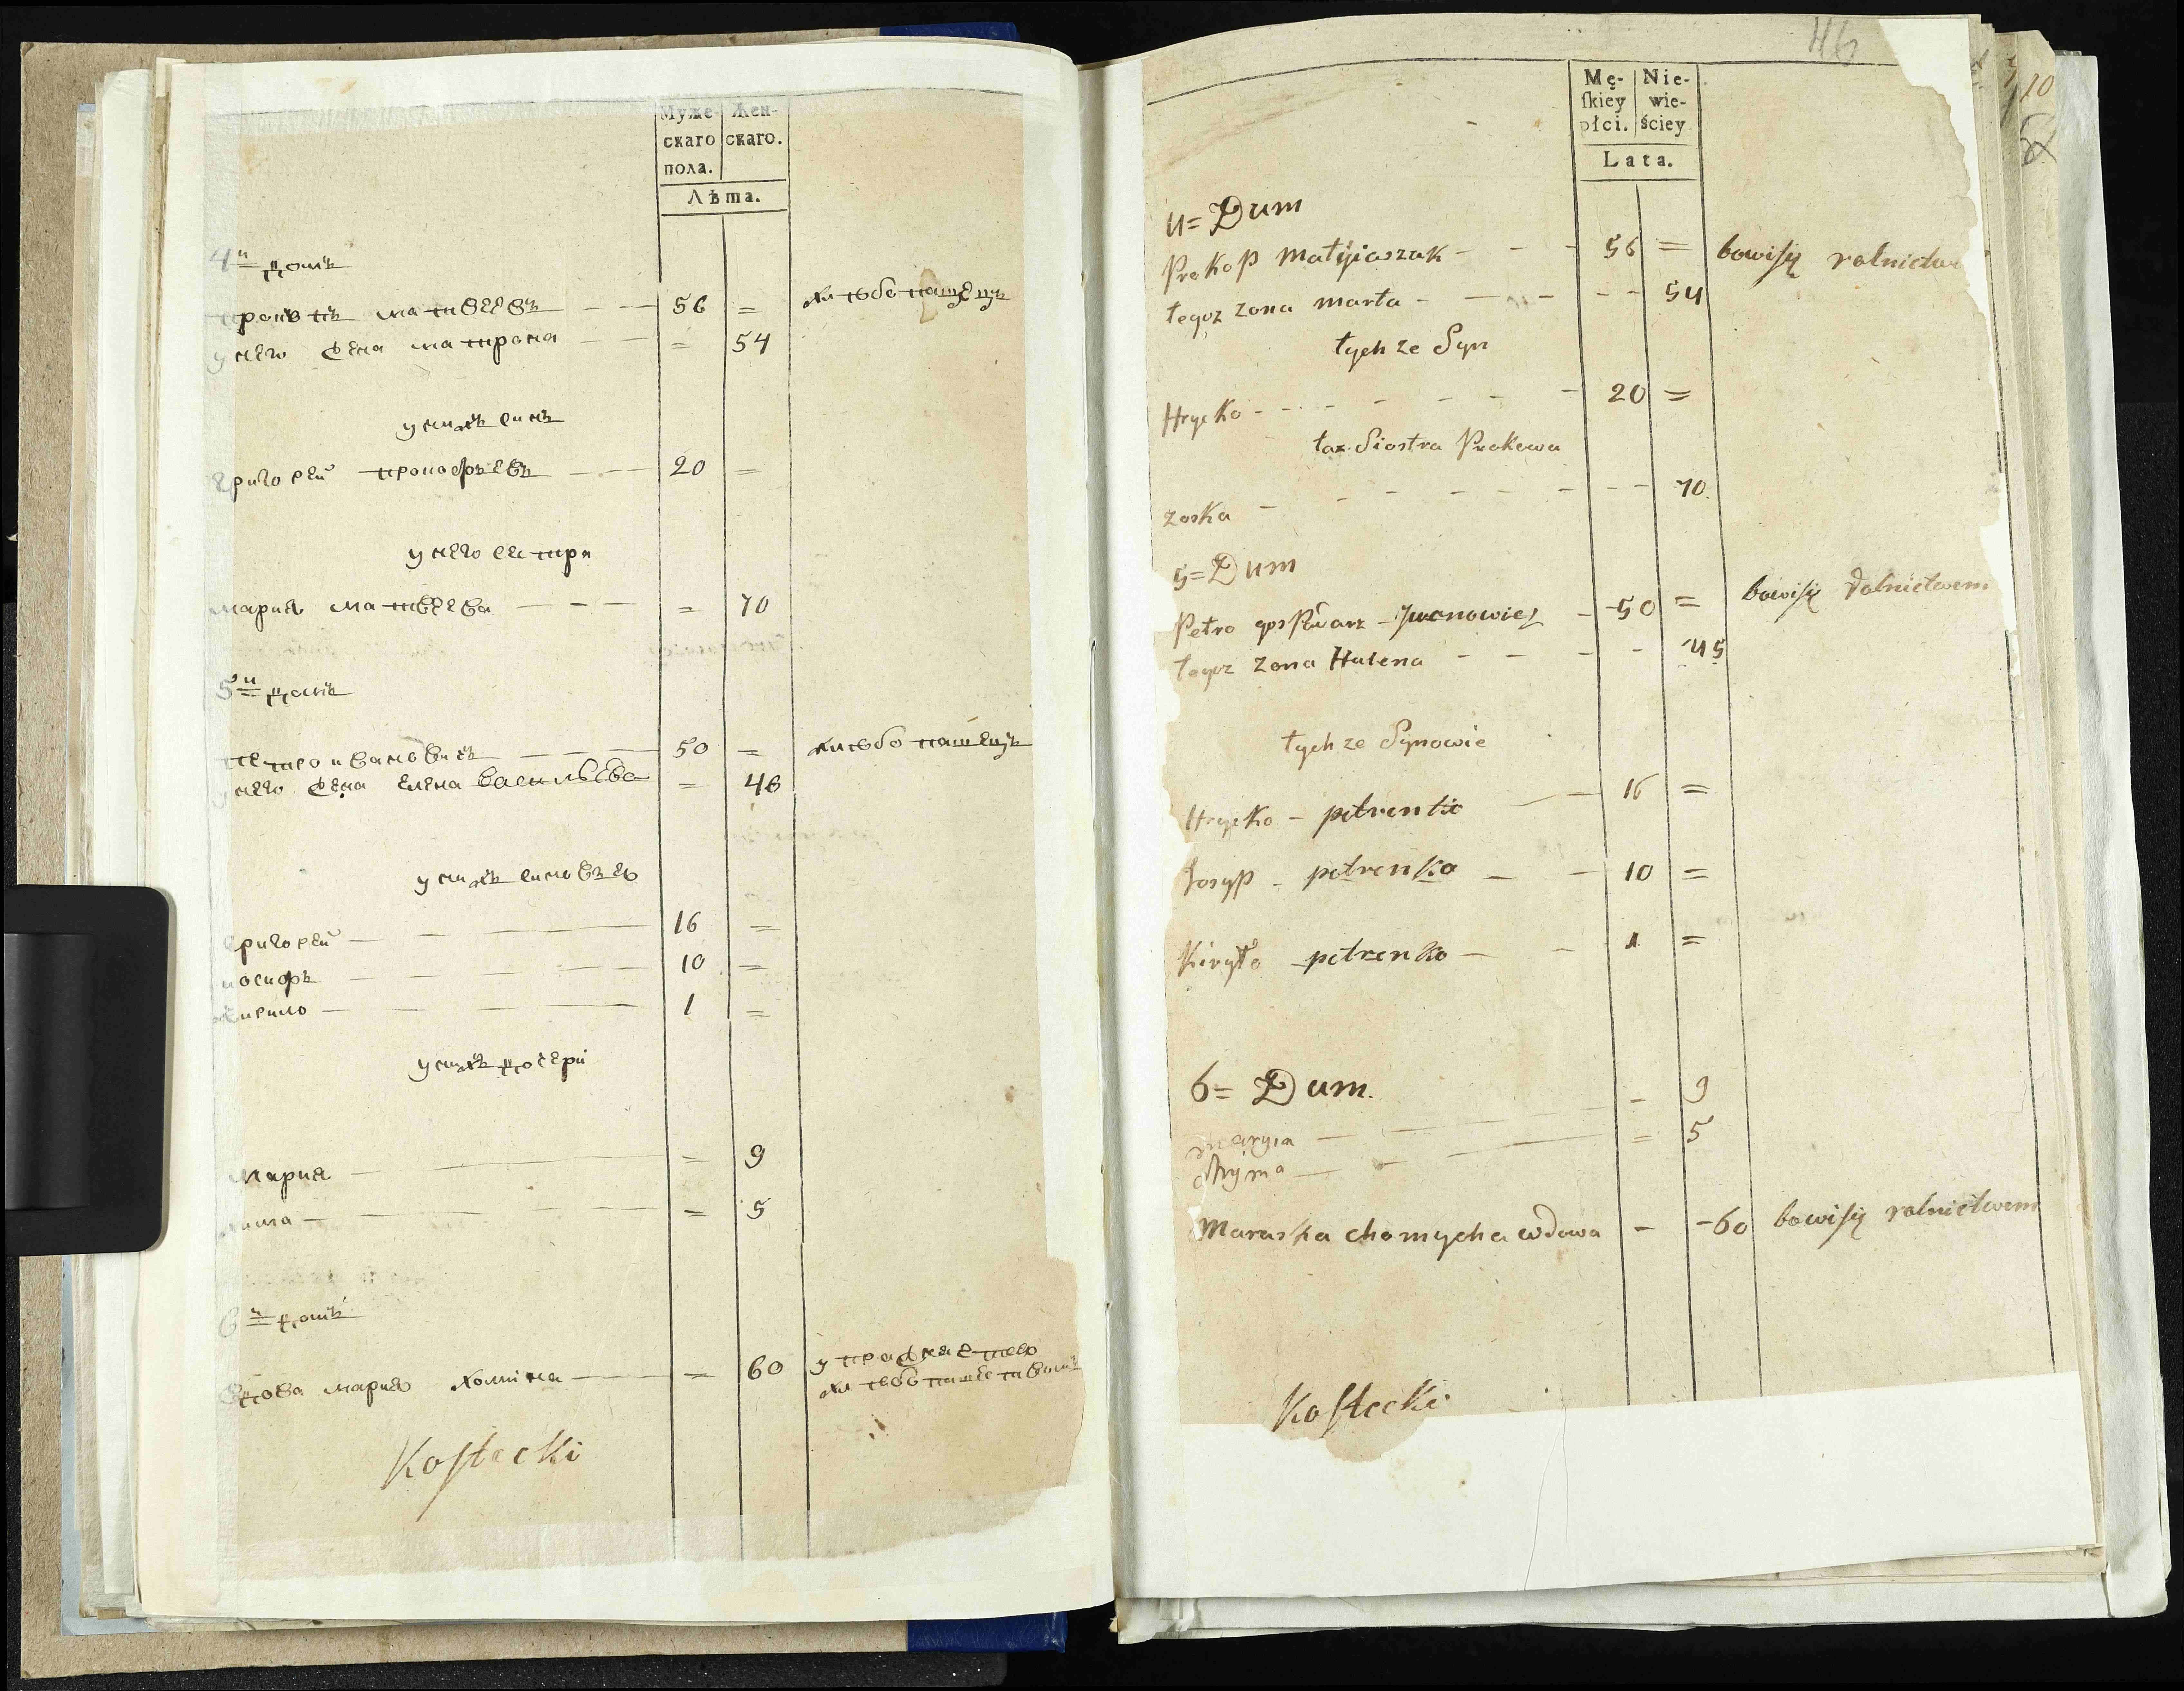 Муже-
скаго
пола.
Жен-
скаго.
Лѣта.
4й домъ
прокопъ матвеевъ — — 56 = хлѣбопашецъ
у него жена матрона — — = 54
у нихъ синъ
григорей прокофьевъ — — 20 =
у него сестра
мария матвеева — — — = 70
5й домъ
петро ивановичъ — — 50 = хлѣбопашецъ
у него жена елена васильева = 46
у нихъ синовья
григорей — — — 16 =
иосифъ — — — 10 =
кирило — — — 1 =
у нихъ дочери
Мария — — — = 9
хима — — — = 5
6й домъ
вдова мария хомина — = 60 упражняется
хлѣбопашествомъ
Kostecki
46
Mę-
skiey
płci.
Nie-
wie-
ściey
Lata.
4= Dum
Prokop Matyiaszak - - - 56 = bawi się rolnictwe
tegoz zona marta - - - - 54
tych ze Syn
Hrycko - - - - - 20 =
taz Siostra Prokowa
zoska - - - - - 70.
5= Dum
Petro gospodarz - Jwanowicz - 50 = bawi się rolnictwem
tegoz zona Halena - - - - 45
tych ze Synowie
Hrycko - petrenko — 16 =
Josyp - petrenko — 10 =
Kiryło petrenko — 1 =
6= Dum.
maryia — — - 9
Chyma — — = 5
Maruska chomycha wdowa - -60 bawi się rolnictwem
Kostecki
10